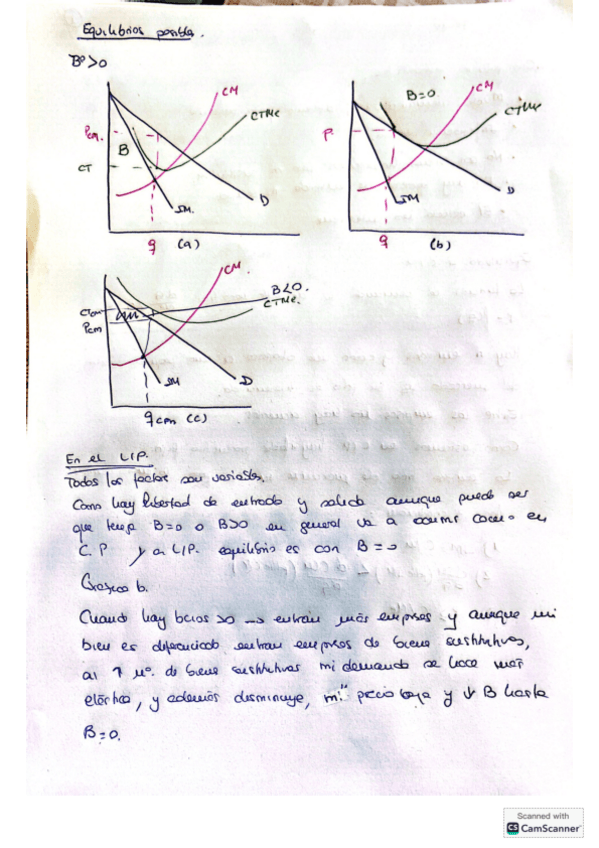 Equilibrios posibles.
Bº>0
CM
CTMe
Pcm.
B
CT
IM.
D
q (a)
B=0
CM
CTMe
P
IM
D
q (b)
CM.
B<0.
CTMe.
Pcm
IM
D
qcm (c)
En el L/P.
Todos los factores son variables.
Como hay libertad de entrada y salida aunque puede ser
que tenga B=0 o B>0 en general va a ocurrir como en
C.P y en L/P. equilibrio es con B=0
Grafico b.
Cuando hay bcios >0 → entran más empresas y aunque mi
bien es diferenciado entran empresas de bienes sustitutivos,
al ↑ nº. de bienes sustitutivos mi demanda se hace más
elástica, y además disminuye, mi precio baja y ↓ B hasta
B=0.
Scanned with
CS CamScanner